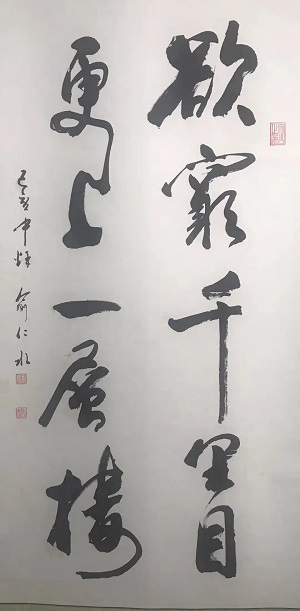 欲窮千里目
更上一層樓
己亥中秋 俞仁水